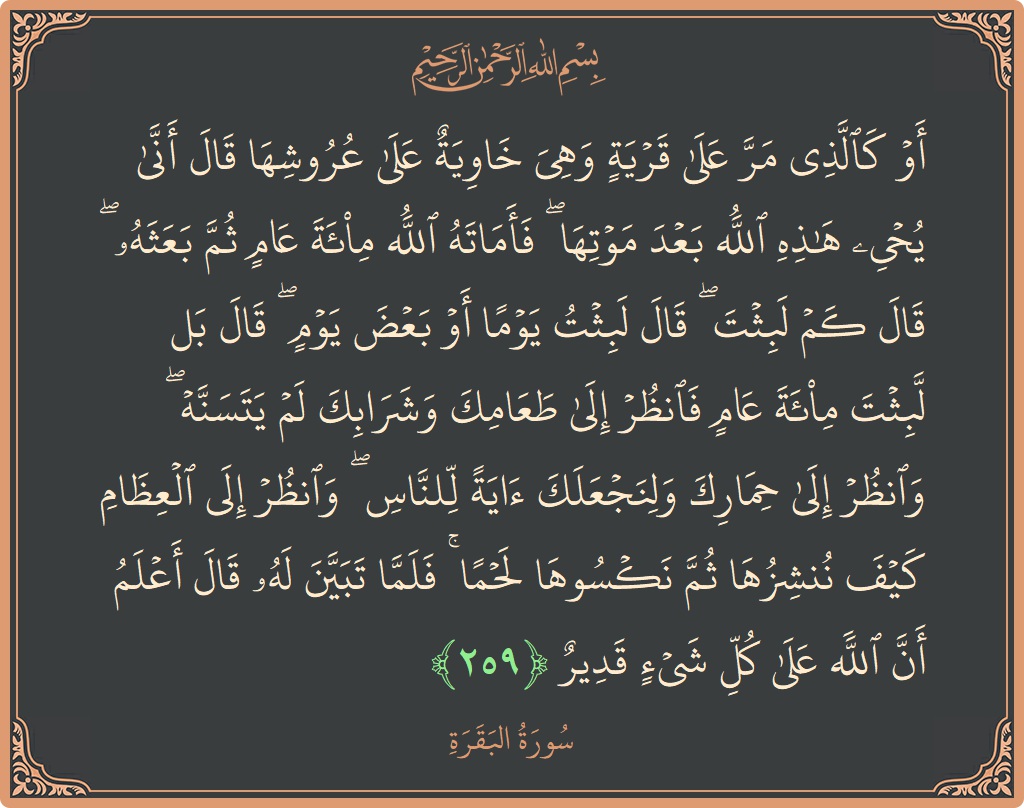 بِسْمِ اللَّهِ الرَّحْمَٰنِ الرَّحِيمِ
أَوۡ كَٱلَّذِي مَرَّ عَلَىٰ قَرۡيَةٖ وَهِيَ خَاوِيَةٌ عَلَىٰ عُرُوشِهَا قَالَ أَنَّىٰ
يُحۡيِۦ هَٰذِهِ ٱللَّهُ بَعۡدَ مَوۡتِهَاۖ فَأَمَاتَهُ ٱللَّهُ مِاْئَةَ عَامٖ ثُمَّ بَعَثَهُۥۖ
قَالَ كَمۡ لَبِثۡتَۖ قَالَ لَبِثۡتُ يَوۡمًا أَوۡ بَعۡضَ يَوۡمٖۖ قَالَ بَل
لَّبِثۡتَ مِاْئَةَ عَامٖ فَٱنظُرۡ إِلَىٰ طَعَامِكَ وَشَرَابِكَ لَمۡ يَتَسَنَّهۡۖ
وَٱنظُرۡ إِلَىٰ حِمَارِكَ وَلِنَجۡعَلَكَ ءَايَةٗ لِّلنَّاسِۖ وَٱنظُرۡ إِلَى ٱلۡعِظَامِ
كَيۡفَ نُنشِزُهَا ثُمَّ نَكۡسُوهَا لَحۡمٗاۚ فَلَمَّا تَبَيَّنَ لَهُۥ قَالَ أَعۡلَمُ
أَنَّ ٱللَّهَ عَلَىٰ كُلِّ شَيۡءٖ قَدِيرٞ ﴿٢٥٩﴾
سُورَةُ البَقَرَةِ